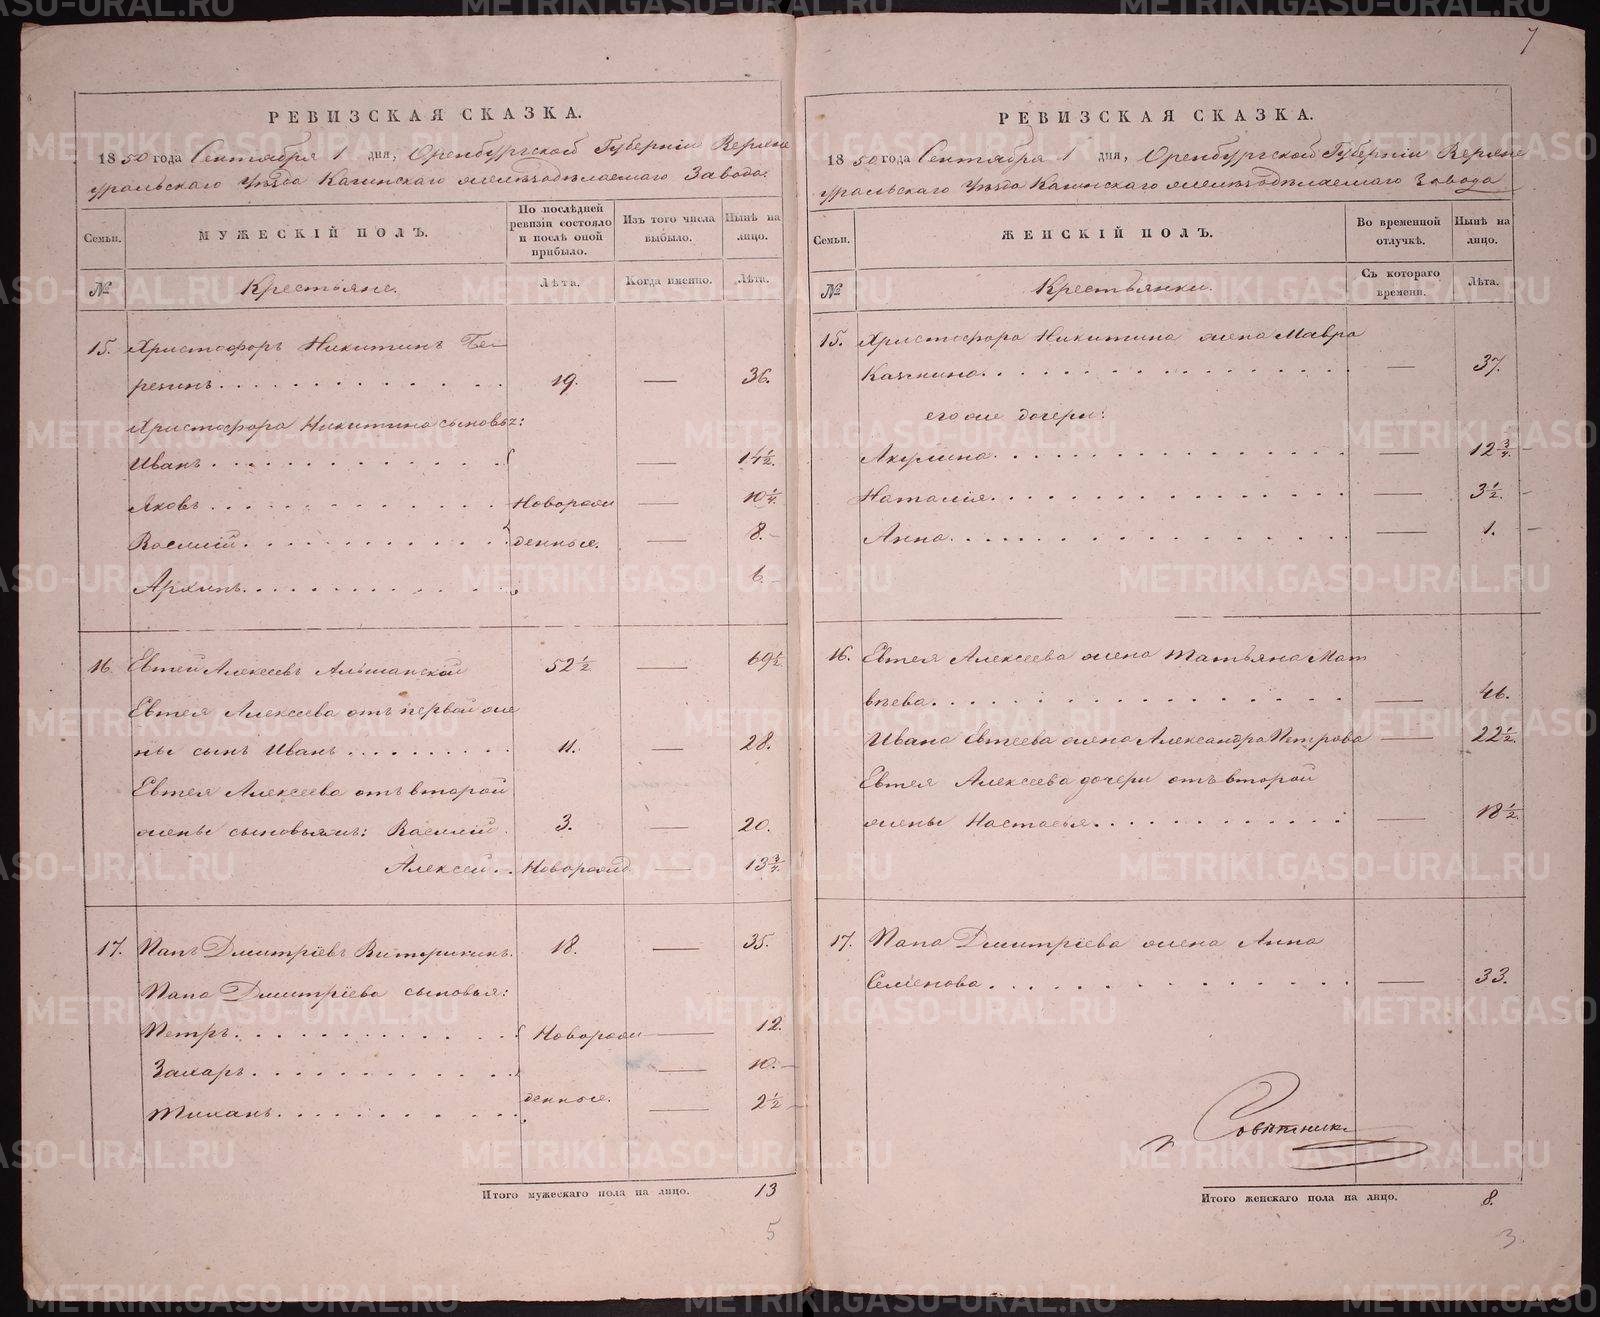 7
РЕВИЗСКАЯ СКАЗКА.
1850 года Сентября 1 дня, Оренбургской Губерніи Верхне
уральскаго Уѣзда Кагинскаго желѣзодѣлаемаго Завода.
Семьи.
МУЖЕСКІЙ ПОЛЪ.
По послѣдней ревизіи состояло и послѣ оной прибыло.
Изъ того числа выбыло.
Нынѣ на лицо.
№
Крестьяне.
Лѣта.
Когда именно.
Лѣта.
15. Христофоръ Никитинъ Бе-
резинъ. 19. — 36.
Христофора Никитина сыновья:
Иванъ. — 14½.
Яковъ. Новорож — 10¼.
Василій. денные. — 8.
Архипъ. 6.
16. Евтей Алексеевъ Альшанской 52½ — 69½.
Евтея Алексеева отъ первой же
ны сынъ Иванъ. 11. — 28.
Евтея Алексеева отъ второй
жены сыновьямъ: Василій. 3. — 20.
Алексей. Новорожд. — 13¾.
17. Папъ Дмитріевъ 18. — 35.
Папа Дмитріева сыновья:
Петръ. Новорож — 12.
Захаръ. — 10.
денные. — 2½
Итого мужескаго пола на лицо. 13
5
РЕВИЗСКАЯ СКАЗКА.
1850 года Сентября 1 дня, Оренбургской Губерніи Верхне
уральскаго Уѣзда Кагинскаго желѣзодѣлаемаго Завода
Семьи.
ЖЕНСКІЙ ПОЛЪ.
Во временной отлучкѣ.
Нынѣ на лицо.
№
Крестьянки.
Съ котораго времени.
Лѣта.
15. Христофора Никитина жена Мавра
Казмина. — 37.
его же дочери:
Акулина. — 12¾.
Наталія. — 3½.
Анна. — 1.
16. Евтея Алексеева жена Татьяна Мат
вѣева. — 46.
Ивана Евтеева жена Александра Петрова — 22½.
Евтея Алексеева дочери отъ второй
жены Настасья. — 18½
17. Папа Дмитріева жена Анна
Семенова. — 33.
Совѣтникъ
Итого женскаго пола на лицо. 8.
3.
METRIKI.GASO-URAL.RU